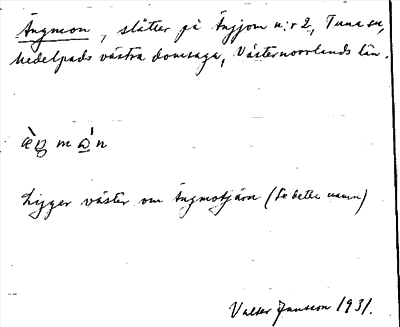 Ängmon, slåtter på Ängjom n:r 2, Tuna sn,
Medelpads västra domsaga, Västernorrlands län.
Ligger väster om Ängmotjärn (Se detta namn)
Valter Jansson 1931.